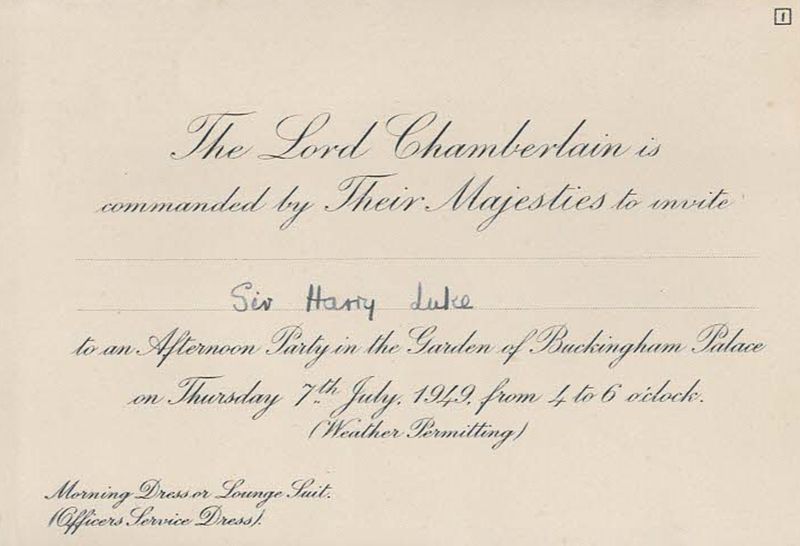 1
The Lord Chamberlain is
commanded by Their Majesties to invite
Sir Harry Luke
to an Afternoon Party in the Garden of Buckingham Palace
on Thursday 7th July, 1949, from 4 to 6 o'clock.
(Weather Permitting)
Morning Dress or Lounge Suit.
(Officers Service Dress).